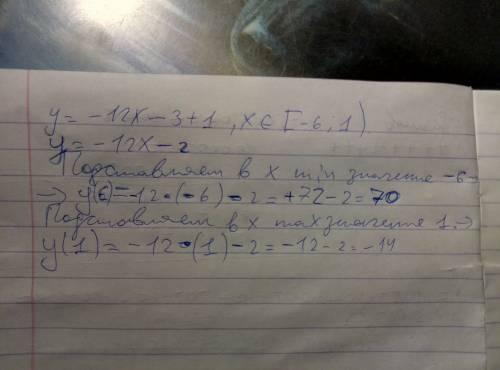 y = -12x - 3 + 1 , x ∈ [-6 ; 1)
y = -12x - 2
Подставляем в x min значение -6 -
→ y(6) = -12 · (-6) - 2 = +72 - 2 = 70
Подставляем в x max значение 1. →
y(1) = -12 · (1) - 2 = -12 - 2 = -14